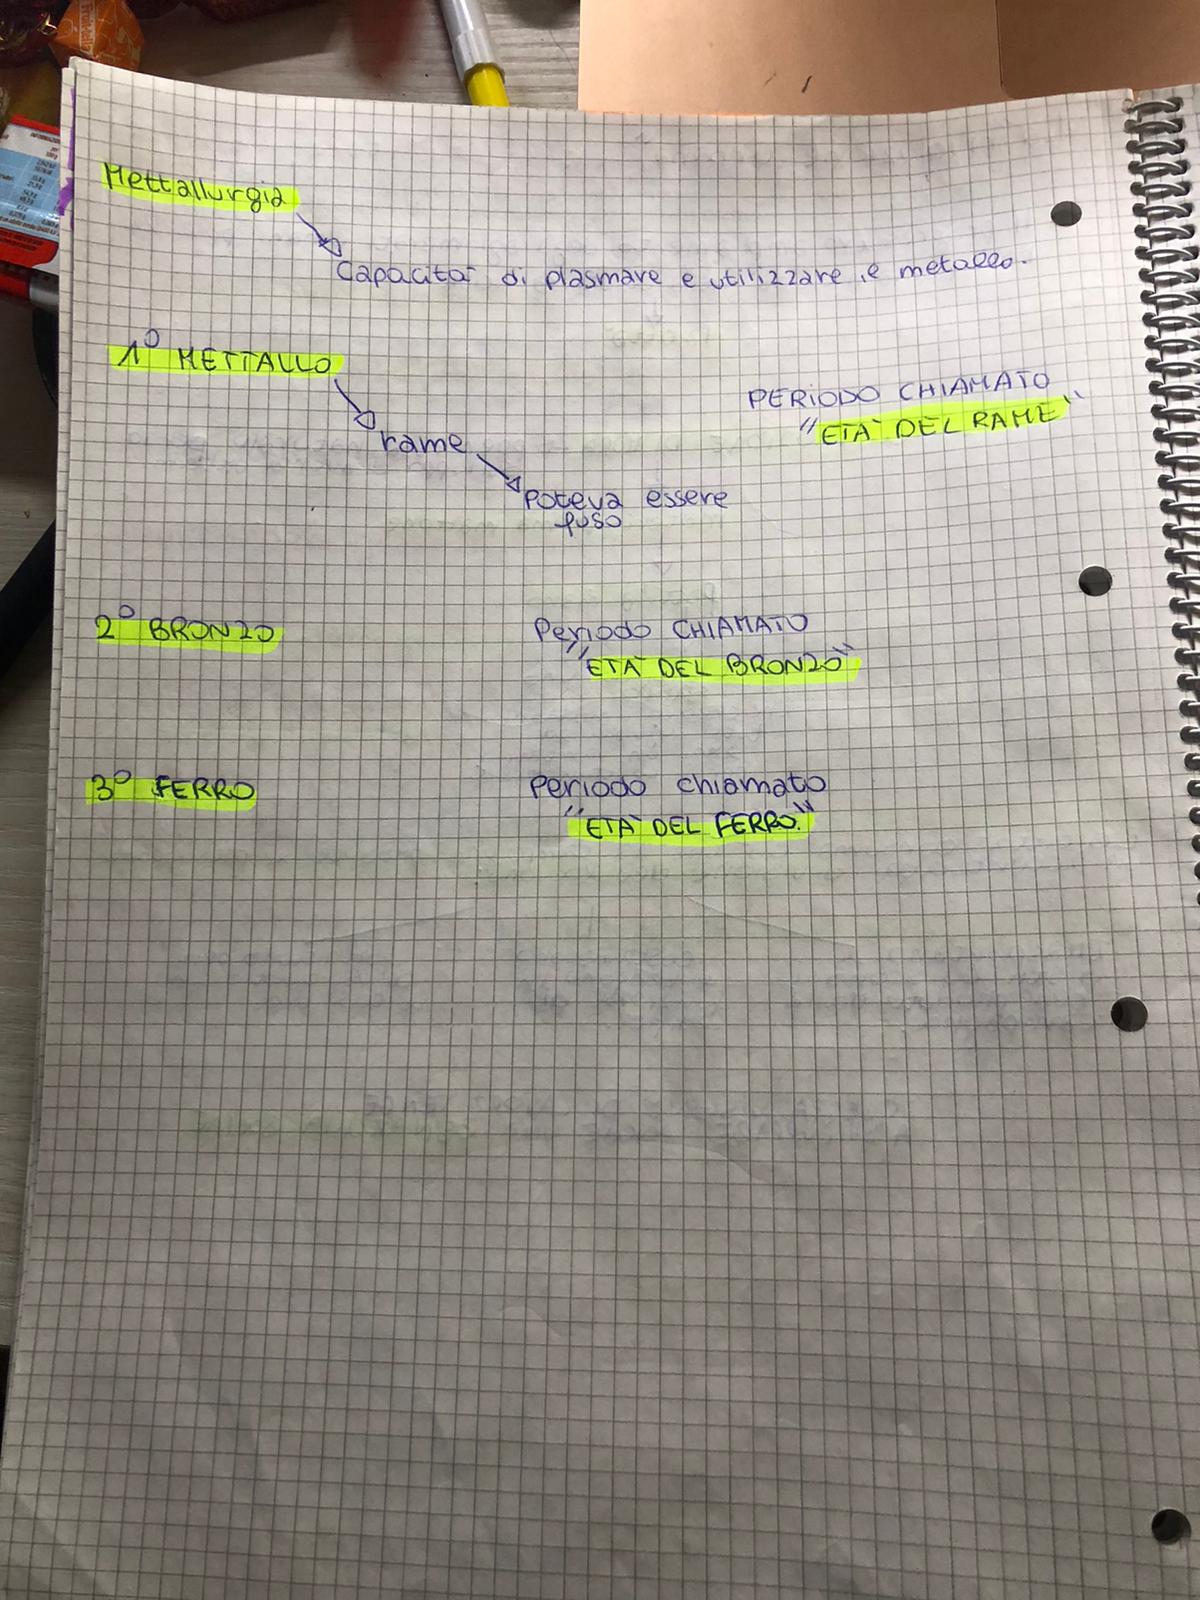 Mettallurgia
Capacità di plasmare e utilizzare il metallo.
1° METTALLO
PERIODO CHIAMATO
"ETA' DEL RAME"
rame
poteva essere
fuso
2° BRONZO
Periodo CHIAMATO
"ETA' DEL BRONZO"
3° FERRO
Periodo chiamato
"ETA' DEL FERRO."